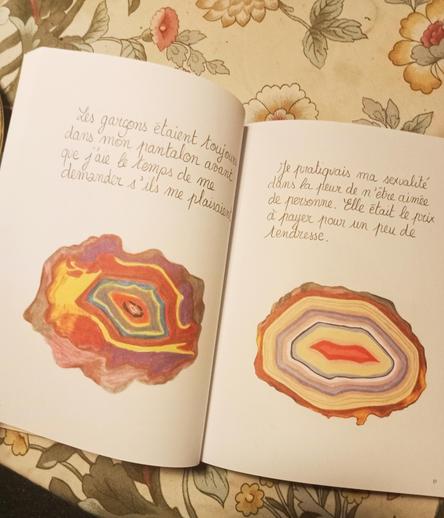 Les garçons étaient toujours
dans mon pantalon avant
que j'aie le temps de me
demander s'ils me plaisaient
Je pratiquais ma sexualité
dans la peur de n'être aimée
de personne. Elle était le prix
à payer pour un peu de
tendresse.